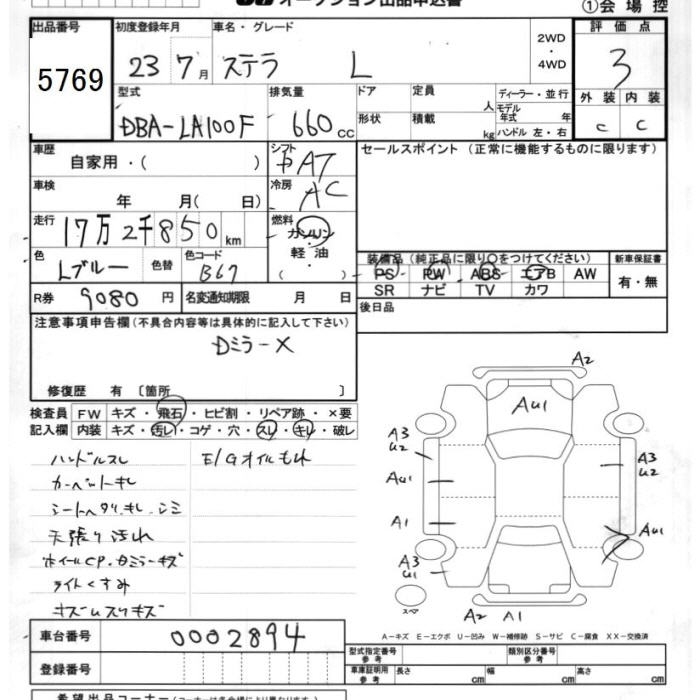 オークション出品申込書
①会場控
出品番号
5769
初度登録年月
23 7月
車名・グレード
ステラ L
2WD
・
4WD
評価点
3
外装 内装
C C
型式
DBA-LA100F
排気量
660cc
ドア
形状
定員
人
積載
kg
ディーラー・並行
モデル年式 年
ハンドル 左・右
車歴
自家用・( )
シフト
AT
冷房
AC
セールスポイント (正常に機能するものに限ります)
車検
年 月( 日)
走行
17万2千850km
燃料
ガソリン
・
軽油
( )
色
Lブルー
色替
色コード
B67
装備品(純正品に限り○をつけてください)
PS PW ABS エアB AW
SR ナビ TV カワ
新車保証書
有・無
R券
9080円
名変通知期限 月 日
後日品
注意事項申告欄(不具合内容等は具体的に記入して下さい)
Dミラー×
修復歴 有 〔箇所 〕
検査員記入欄
FW キズ・飛石・ヒビ割・リペア跡・×要
内装 キズ・汚レ・コゲ・穴・スレ・キレ・破レ
ハンドルスレ
E/Gオイルもれ
カーペットキレ
シートヘタリ、キレ、シミ
天張り汚れ
ホイールCP、カミラーキズ
ライトくすみ
キズムスリキズ
A2
AU1
A3
U2
A3
U2
AU1
A1
AU1
A3
U1
スペア
A2 A1
A-キズ E-エクボ U-凹み W-補修跡 S-サビ C-腐食 XX-交換済
車台番号
0002894
登録番号
型式指定番号
参考
類別区分番号
参考
車庫証明用
参考
長さ cm
幅 cm
高さ cm
希望出品コーナー